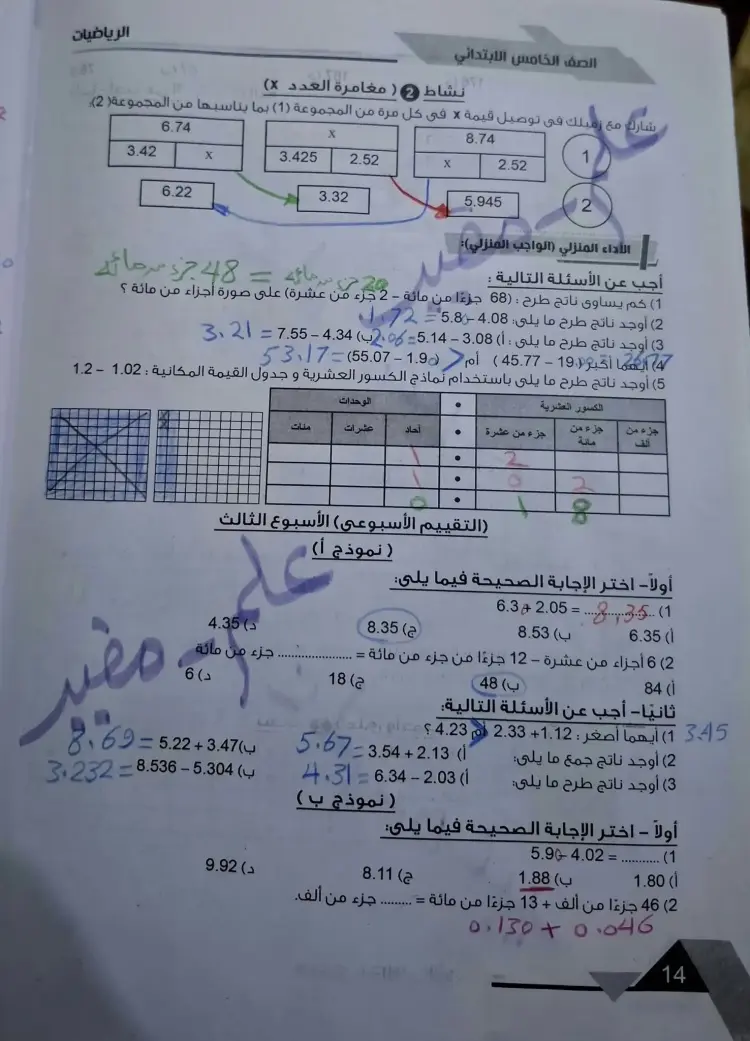 الرياضيات
الصف الخامس الابتدائي
نشاط 2 ( مغامرة العدد x)
شارك مع زميلك في توصيل قيمة x في كل مرة من المجموعة (1) بما يناسبها من المجموعة (2):
6.74
3.42 x
x
3.425 2.52
8.74
x 2.52
1
6.22
3.32
5.945
2
علم - مفيد
الأداء المنزلي (الواجب المنزلي):
أجب عن الأسئلة التالية :
48 جزء من مائة = 20 جزء من مائة
1) كم يساوي ناتج طرح : (68 جزءًا من مائة – 2 جزء من عشرة) على صورة أجزاء من مائة ؟
2) أوجد ناتج طرح ما يلي: 4.08 – 5.80 = 1.72
3) أوجد ناتج طرح ما يلي : أ) 3.08 – 5.14 = 2.06 ب) 4.34 – 7.55 = 3.21
4) أيهما أكبر ( 45.77 – 19 أم > (55.07 – 1.90) = 53.17
5) أوجد ناتج طرح ما يلي باستخدام نماذج الكسور العشرية و جدول القيمة المكانية : 1.02 – 1.2
الوحدات • الكسور العشرية
مئات عشرات آحاد • جزء من عشرة جزء من مائة جزء من ألف
1 • 2
1 • 0 2
0 • 1 8
(التقييم الأسبوعي) الأسبوع الثالث
( نموذج أ)
أولاً– اختر الإجابة الصحيحة فيما يلي:
1) 6.3 + 2.05 = 8.35
أ) 6.35 ب) 8.53 ج) 8.35 د) 4.35
2) 6 أجزاء من عشرة – 12 جزءًا من جزء من مائة = .................. جزء من مائة
أ) 84 ب) 48 ج) 18 د) 6
علم - مفيد
ثانيًا– أجب عن الأسئلة التالية:
1) أيهما أصغر : 1.12+ 2.33 أم 4.23 ؟ 3.45
2) أوجد ناتج جمع ما يلي: أ) 3.54 + 2.13 = 5.67 ب) 5.22 + 3.47 = 8.69
3) أوجد ناتج طرح ما يلي: أ) 6.34 – 2.03 = 4.31 ب) 8.536 – 5.304 = 3.232
( نموذج ب )
أولاً – اختر الإجابة الصحيحة فيما يلي:
1) 5.90 – 4.02 = ...........
أ) 1.80 ب) 1.88 ج) 8.11 د) 9.92
2) 46 جزءًا من ألف + 13 جزءًا من مائة = ......... جزء من ألف.
0.130 + 0.046
14